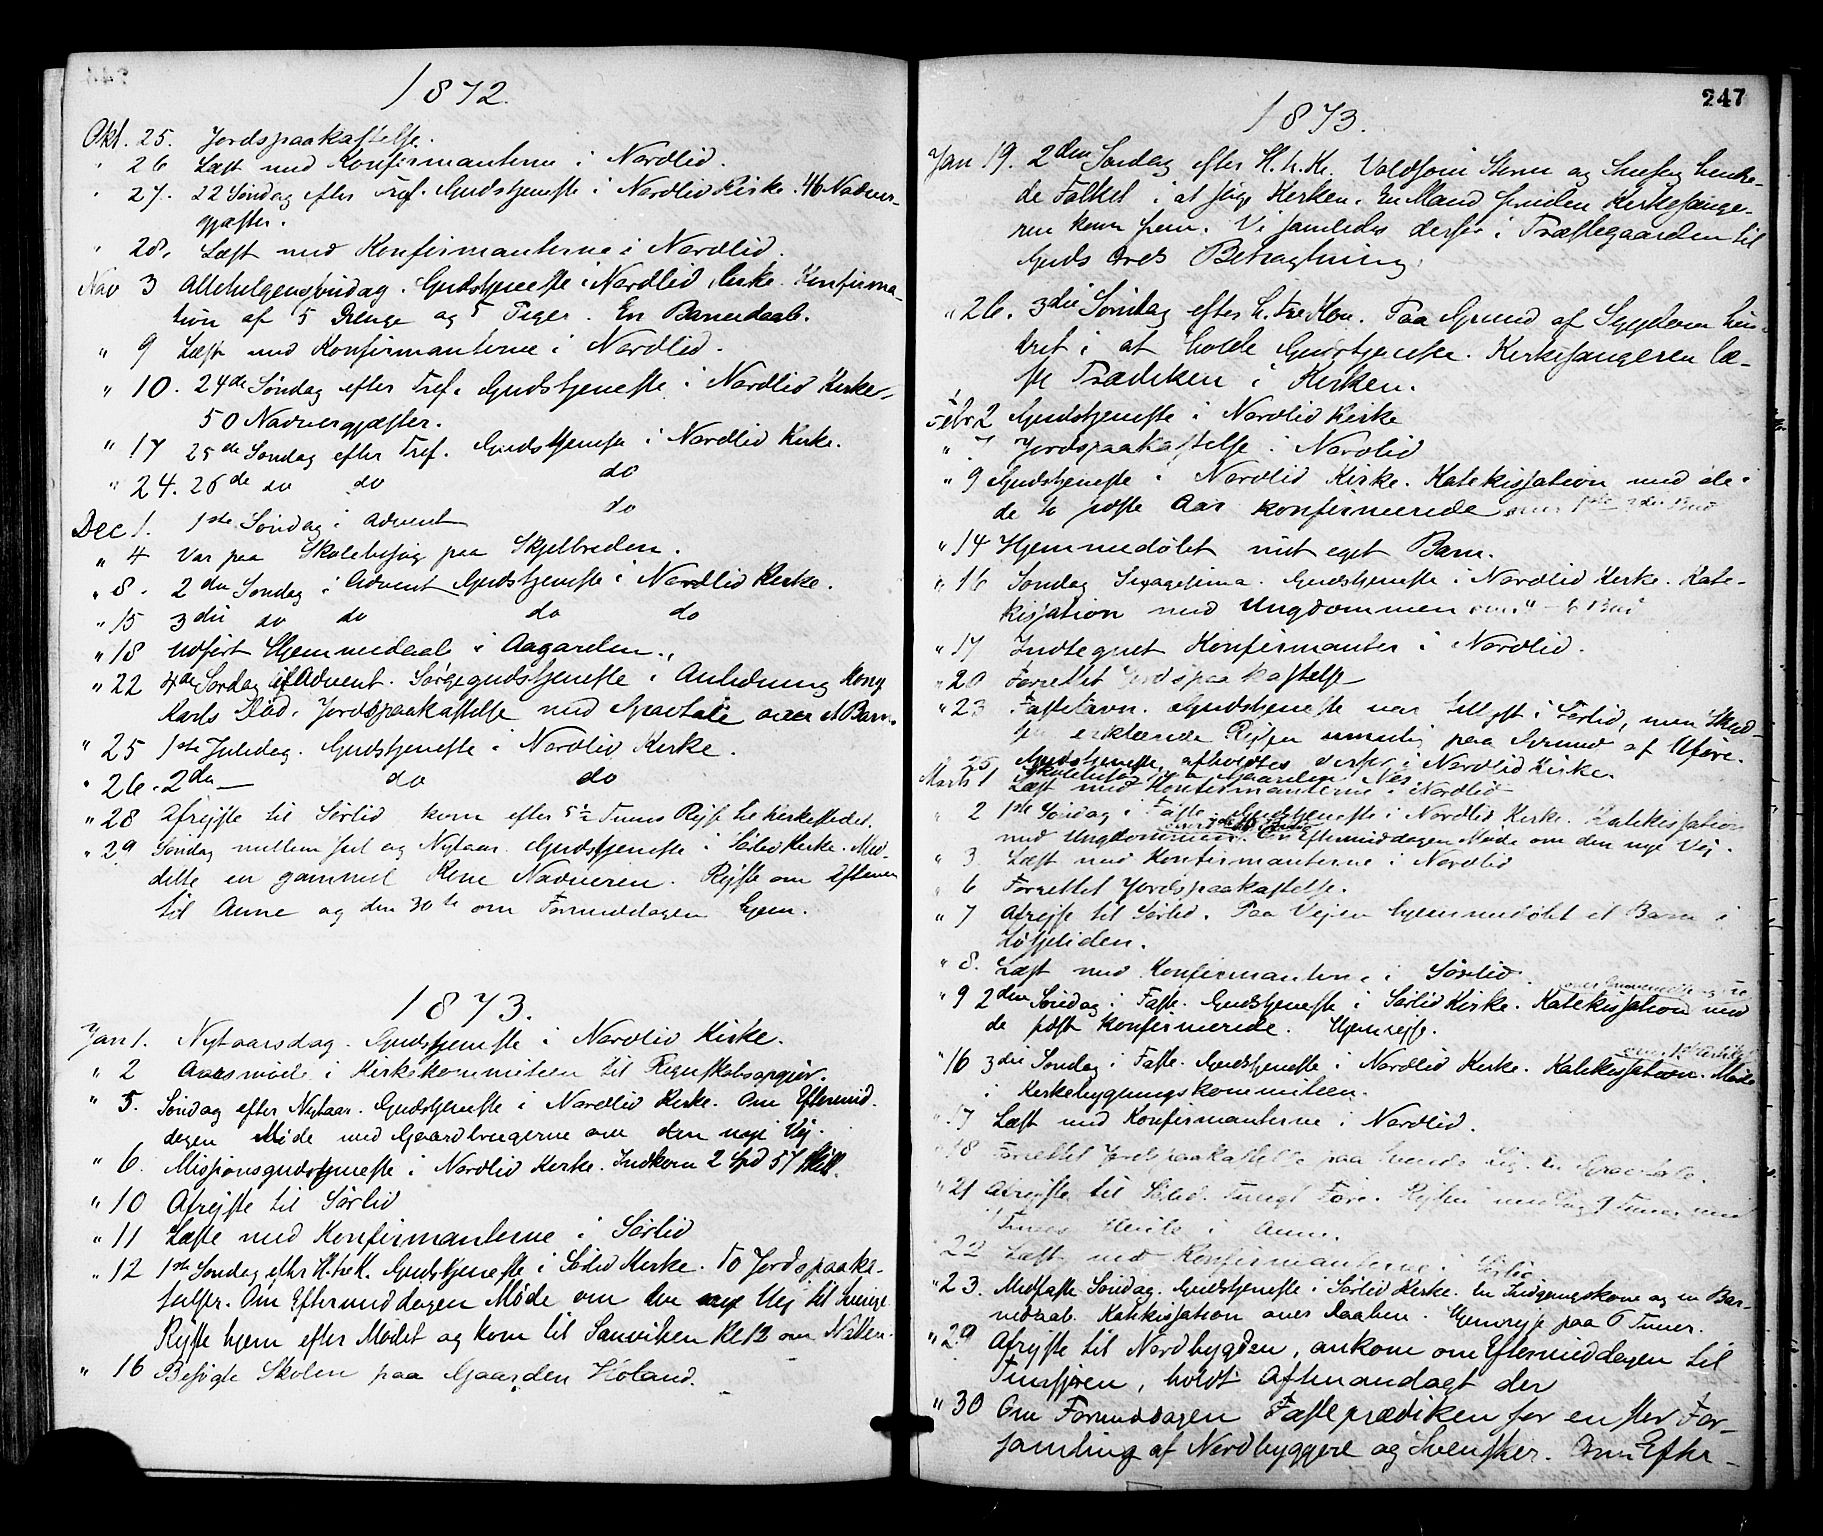 1872.
Okt. 25. Jordspaakastelse.
" 26 Læst med Konfirmanterne i Nordlid.
" 27. 22 Söndag efter Tref. Gudstjeneste i Nordlid Kirke. 46 Nadver-
gjæster.
" 28. Læst med Konfirmanterne i Nordlid.
Nov 3 Allehelgensöndag. Gudstjeneste i Nordlid Kirke. Konfirma-
tion af 5 Drenge og 5 Piger. En Barnedaab.
" 9 Læst med Konfirmanterne i Nordlid.
" 10. 24de Söndag efter Tref. Gudstjeneste i Nordlid Kirke,
50 Nadvergjæster.
" 17 25de Söndag efter Tref. Gudstjeneste i Nordlid Kirke.
" 24. 26de do do do
Dec 1. 1ste Söndag i Advent do
" 4 Var paa Skolebesøg paa Skjelbreden.
" 8. 2den Söndag i Advent Gudstjeneste i Nordlid Kirke.
" 15 3die do do do do
" 18 Udført Hjemmedaab i Aagarden.
" 22 4de Söndag i Advent. Sørgegudstjeneste i Anledning Kong
Karls Død. Jordspaakastelse med Gravtale over et Barn.
" 25 1ste Juledag. Gudstjeneste i Nordlid Kirke.
" 26. 2den — do do
" 28 Afrejste til Sørlid kom efter 5½ Times Rejse til Kirkestedet.
" 29 Söndag mellem Jul og Nytaar. Gudstjeneste i Sørlid Kirke. Med-
delte en gammel Kone Nadveren. Rejste om Eftermd
til Anne og den 30te om Formiddagen hjem.
1873.
Jan 1. Nytaarsdag. Gudstjeneste i Nordlid Kirke.
" 2 Aarsmøde i Kirkekommiteen til Regnskabsopgjør.
" 5. Söndag efter Nytaar. Gudstjeneste i Nordlid Kirke. Om Eftermid-
dagen Møde med Gaardbrugerne om den nye Vej.
" 6. Missionsgudstjeneste i Nordlid Kirke. Indkom 2 Spd 57 Skill.
" 10 Afrejste til Sørlid
" 11 Læste med Konfirmanterne i Sørlid
" 12 1ste Söndag efter H.tr.K. Gudstjeneste i Sørlid Kirke. To Jordspaaka-
stelser. Om Eftermiddagen Møde om den nye Vej til Sverige.
Rejste hjem efter Mødet og kom til Sandviken Kl 12 om Natten.
" 16 Besøgte Skolen paa Gaarden Holand.
247
1873.
Jan 19. 2den Söndag efter H.tr.K. Voldsom Storm og Snefog hindre-
de Folket i at søge Kirken. En Mand foruden Kirkesange-
ren kom frem. Vi samledes derfor i Præstegaarden til
Guds Ords Betragtning.
" 26. 3die Söndag efter h.tre Kon. Paa Grund af Sygdom hin-
dret i at holde Gudstjeneste. Kirkesangeren læ-
ste Prædiken i Kirken.
Febr 2 Gudstjeneste i Nordlid Kirke
" 7 Jordspaakastelse i Nordlid
" 9 Gudstjeneste i Nordlid Kirke. Katekisation med de i
de to sidste Aar konfirmerede
" 14 Hjemmedøbt mit eget Barn.
" 16 Söndag Sexagesima. Gudstjeneste i Nordlid Kirke. Kate-
kisation med Ungdommen
" 17 Indtegnet Konfirmanter i Nordlid.
" 20 Forrettet Jordspaakastelse
" 23 Fastelavn. Gudstjeneste var tillyst i Sørlid, men Skyd-
sen erklærede Rejsen umulig paa Grund af Uføre.
Gudstjeneste afholdtes derfor i Nordlid Kirke.
" 25 Skolebesøg paa Gaarden Næs
Marts 1 Læst med Konfirmanterne i Nordlid
" 2 1ste Söndag i Faste. Gudstjeneste i Nordlid Kirke. Katekisation
med Ungdommen. Om Eftermiddagen Møde om den nye Vej.
" 3 Læst med Konfirmanterne i Nordlid
" 6 Forrettet Jordspaakastelse.
" 7 Afrejst til Sørlid. Paa Vejen hjemmedøbt et Barn i
" 8. Læst med Konfirmanterne i Sørlid.
" 9 2den Söndag i Faste. Gudstjeneste i Sørlid Kirke. Katekisation med
de sidst konfirmerede. Hjemrejse.
" 16 3die Söndag i Faste. Gudstjeneste i Nordlid Kirke. Katekisation. Møde
i Kirkebygningskommiteen.
" 17 Læst med Konfirmanterne i Nordlid.
" 18 Forrettet Jordspaakastelse paa
" 21 Afrejste til Sørlid. Tungt Føre.
Times Hvile i Anne.
" 22 Læst med Konfirmanterne i Sørlid
" 23. Midfaste Söndag. Gudstjeneste i Sørlid Kirke. En Indgangskone og en Bar-
nedaab. Katekisation over Daaben. Hjemrejse paa 6 Timer.
" 29 Afrejste til Nordbygden, ankom om Eftermiddagen til
holdt Aftenandagt der
" 30 Om Formiddagen Fasteprædiken for en stor For-
samling af Nordbyggere og Svensker. Om Efter-